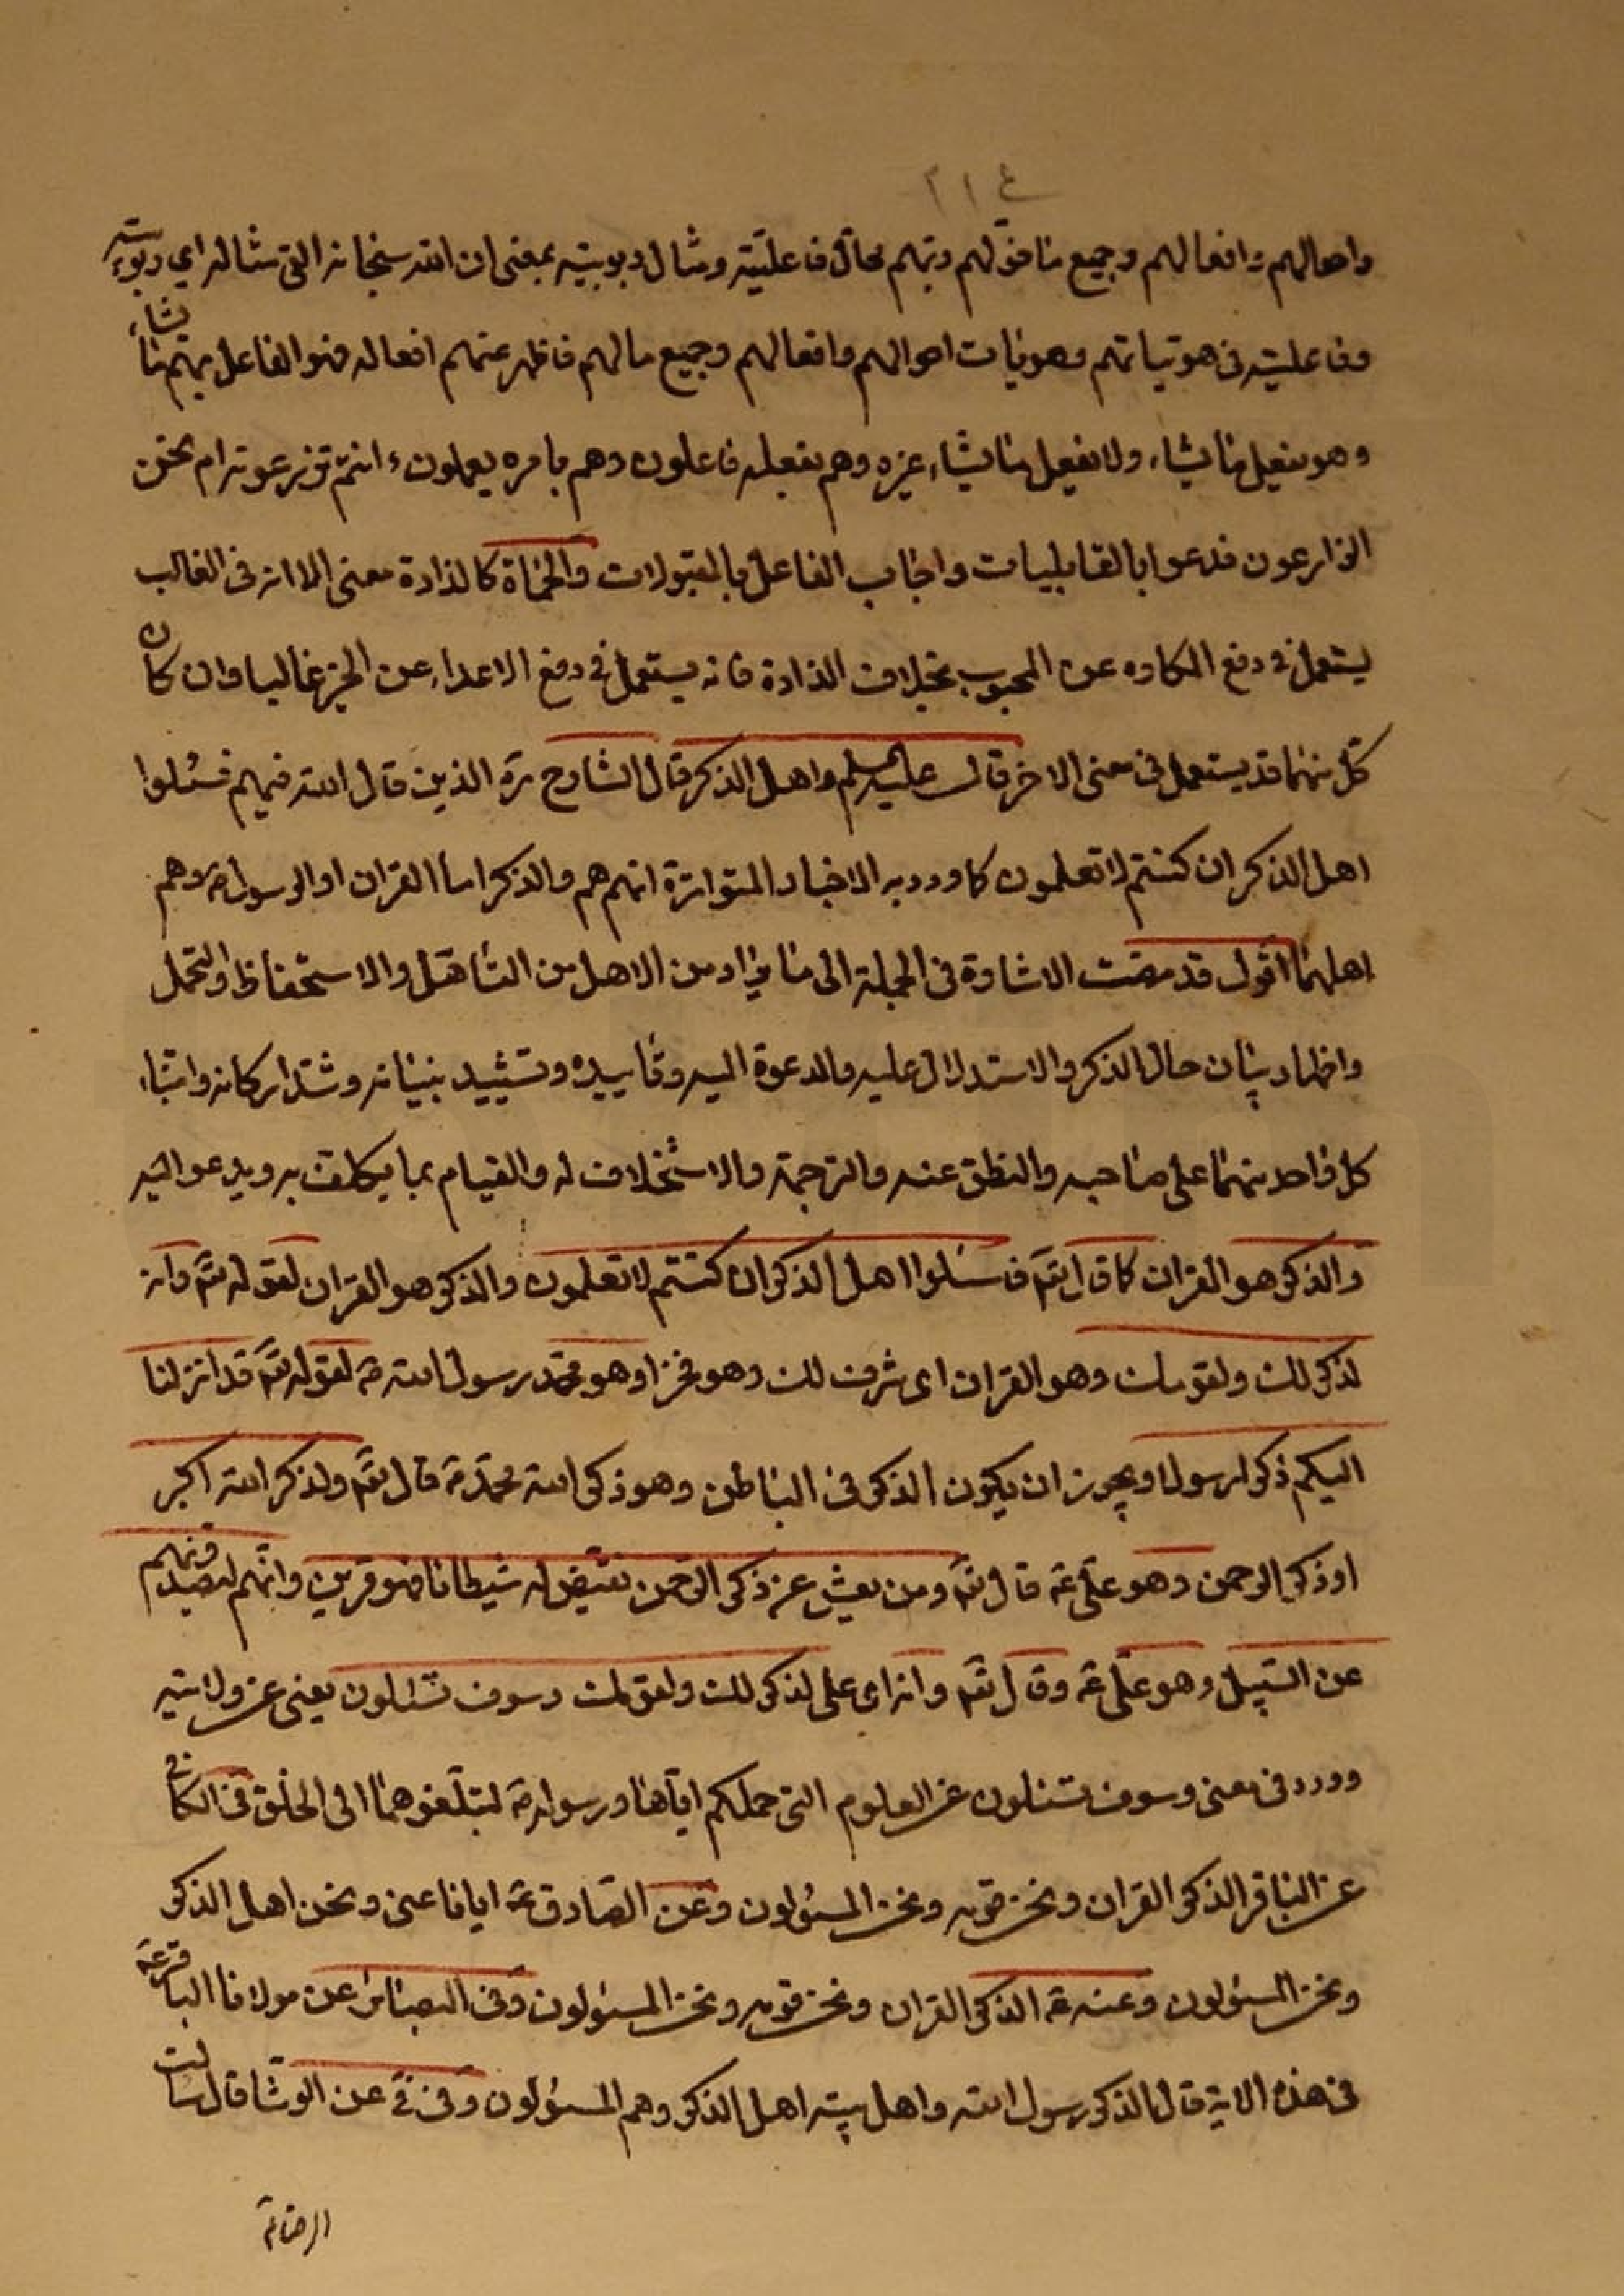 ٢١٤
واحوالهم وافعالهم وجميع ما خولهم ربهم محال فاعليته ومثال ربوبيته بمعنى ان الله سبحانه القى مثاله اي ربوبيته
وفاعليته فى هوياتهم وهويات احوالهم وافعالهم وجميع ما لهم فاظهر عنهم افعاله فهو الفاعل بهم ما يشاء
وهو يفعل ما يشاء ولا يفعل ما يشاء غيره وهم بفعله فاعلون وهم بامره يعملون ءانتم تزرعونه ام نحن
الزارعون فدعوا بالقابليات واجاب الفاعل بالمقبولات والحماة كالذادة معنى الا انه فى الغالب
يستعمل فى دفع المكاره عن المحبوب بخلاف الذادة فانه يستعمل فى دفع الاعداء عن الخير غالبا وان كان
كل منهما قد يستعمل فى معنى الاخر قال عليه السلم واهل الذكر قال الشارح ره الذين قال الله فيهم فسئلوا
اهل الذكر ان كنتم لا تعلمون كما ورد به الاخبار المتواترة انهم هم والذكر اما القران او الرسول ص وهم
اهلهما اقول قد مضت الاشارة فى الجملة الى ما يراد من الاهل من التأهل والاستحفاظ والتحمل
واظهار بيان حال الذكر والاستدلال عليه والدعوة اليه وتأييده وتشييد بنيانه وشد اركانه وابتناء
كل واحد منهما على صاحبه والنطق عنه والترجمة والاستخلاف له والقيام بما يكلف به ويدعو اليه
والذكر هو القران كما قال تع فسئلوا اهل الذكر ان كنتم لا تعلمون والذكر هو القران لقوله تع وانه
لذكر لك ولقومك وهو القران اى شرف لك وهو فخر او هو محمد رسول الله ص لقوله تع قد انزلنا
اليكم ذكرا رسولا ويجوز ان يكون الذكر فى الباطن وهو ذكر الله محمد ص قال تع ولذكر الله اكبر
او ذكر الرحمن وهو على ع قال تع ومن يعش عن ذكر الرحمن نقيض له شيطانا فهو قرين وانهم ليصدونهم
عن السبيل وهو على ع وقال تع وانه اى على لذكر لك ولقومك وسوف تسئلون يعنى عن ولايته
وورد فى معنى وسوف تسئلون عن العلوم التى حملكم اياها ورسوله ص لتبلغوها الى الخلق فى الكافى
عن الباقر الذكر القران ونحن قومه ونحن المسئولون وعن الصادق ع ايانا عنى ونحن اهل الذكر
ونحن المسئولون وعنه ع الذكر القران ونحن قومه ونحن المسئولون وفى البصائر عن مولانا الباقر ع
فى هذه الاية قال الذكر رسول الله واهل بيته اهل الذكر وهم المسئولون وفى فى عن الوشا قال سالت
الرضا ع